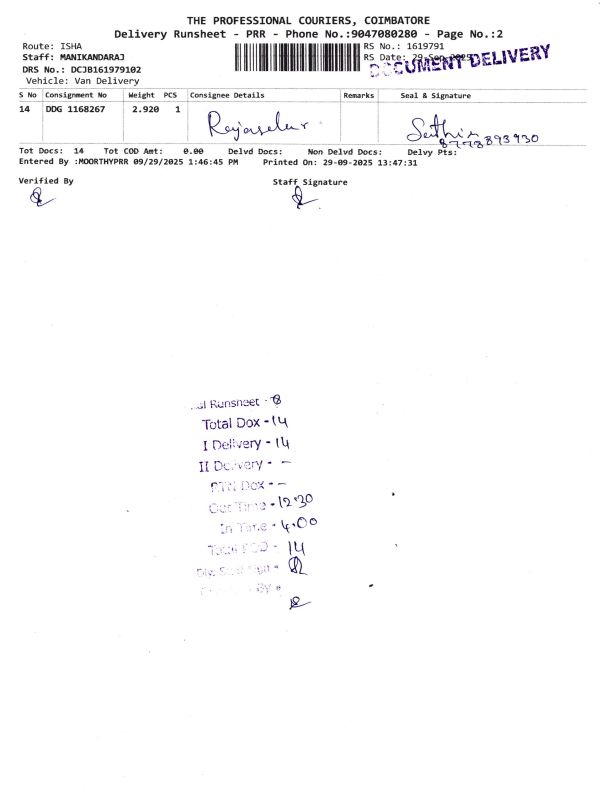 THE PROFESSIONAL COURIERS, COIMBATORE
Delivery Runsheet - PRR - Phone No.:9047080280 - Page No.:2
Route: ISHA
RS No.: 1619791
Staff: MANIKANDARAJ
RS Date: 29-Sep-2025
DOCUMENT DELIVERY
DRS No.: DCJB161979102
Vehicle: Van Delivery
S No Consignment No Weight PCS Consignee Details Remarks Seal & Signature
14 DDG 1168267 2.920 1
8778893930
Tot Docs: 14 Tot COD Amt: 0.00 Delvd Docs: Non Delvd Docs: Delvy Pts:
Entered By :MOORTHYPRR 09/29/2025 1:46:45 PM Printed On: 29-09-2025 13:47:31
Verified By Staff Signature
Runsheet - 8
Total Dox - 14
I Delivery - 14
II Delivery - -
RTN Dox - -
Out Time - 12:30
In Time - 4.00
Total POD - 14
By